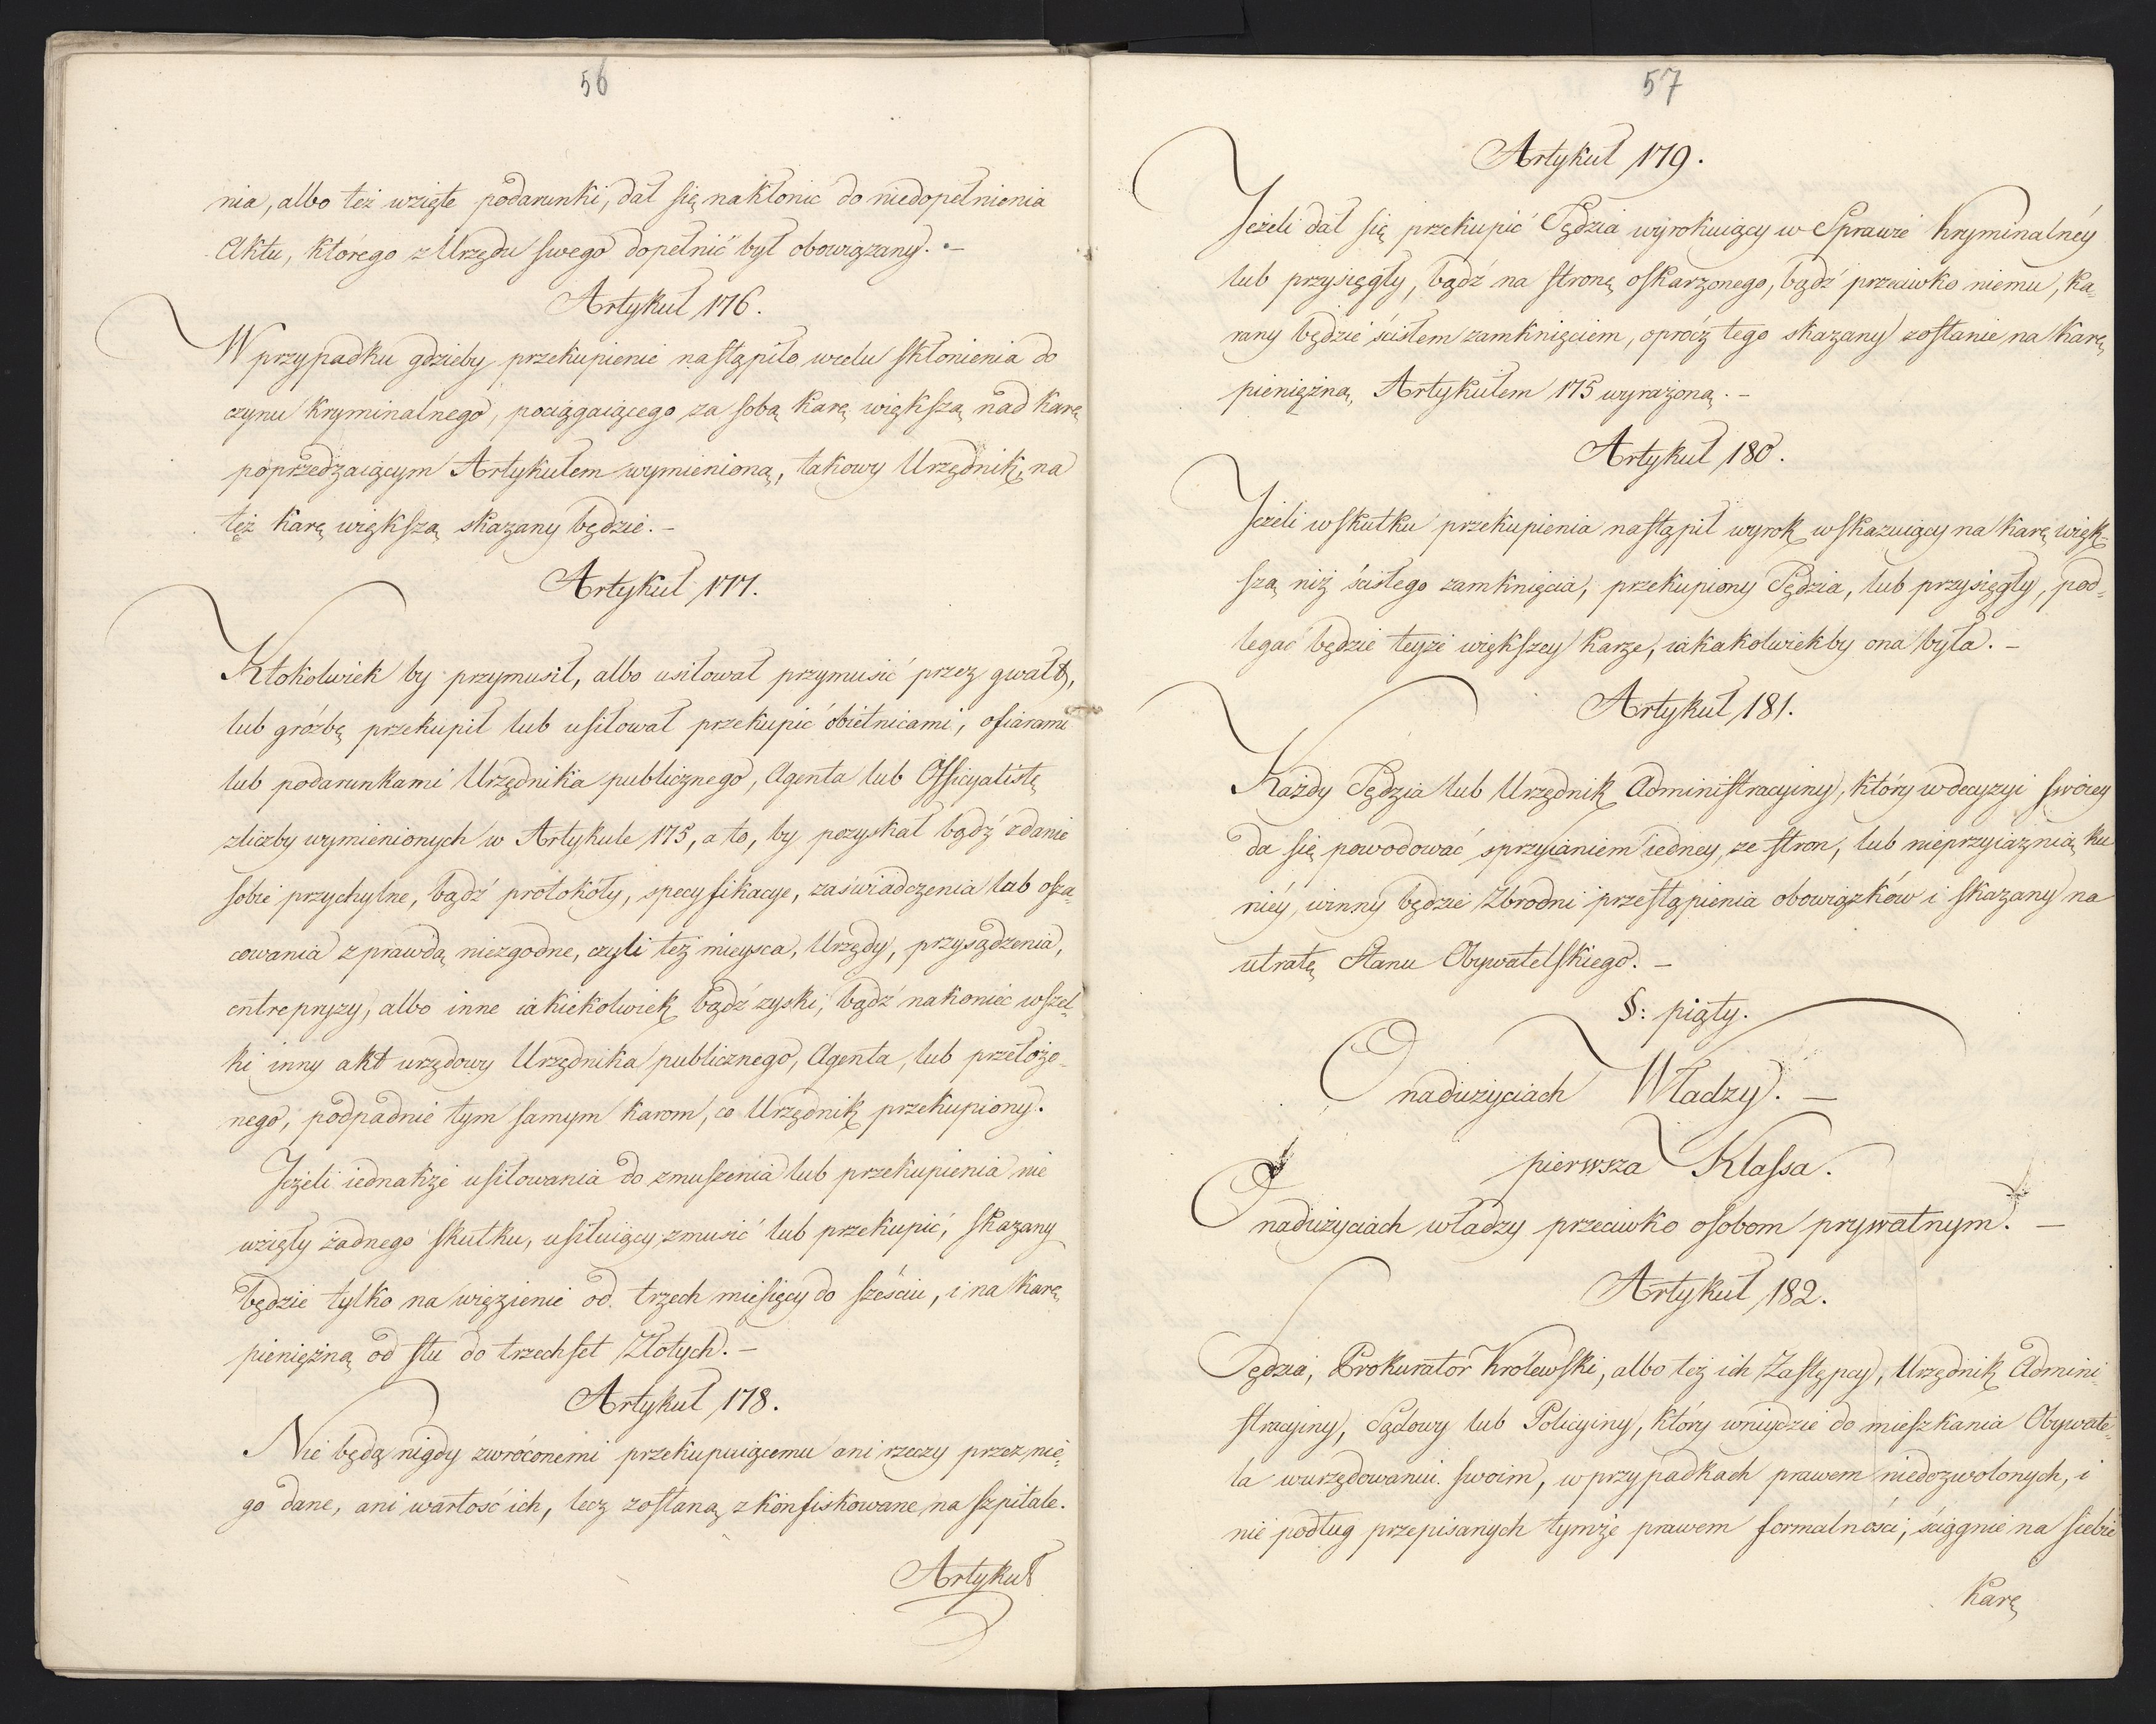 56
nia, albo też wzięte podarunki, dał się nakłonić do niedopełnienia
Aktu, którego z Urzędu swego dopełnić był obowiązany. –
Artykuł 176.
W przypadku gdzieby przekupienie nastąpiło w celu skłonienia do
czynu Kryminalnego, pociągaiącego za sobą karę większą nad karę
poprzedzaiącym Artykułem wymienioną, takowy Urzędnik, na
też karę większą skazany będzie. –
Artykuł 177.
Ktokolwiek by przymusił, albo usiłował przymusić przez gwałt,
lub gróźbę przekupił lub usiłował przekupić obietnicami, ofiarami
lub podarunkami Urzędnika publicznego, Agenta lub Officyalistę
z liczby wymienionych w Artykule 175, a to, by pozyskał bądź zdanie
sobie przychylne, bądź protokóły, specyfikacye, zaświadczenia lub osza-
cowania z prawdą niezgodne, czyli też mieysca, Urzędy, przysądzenia,
entrepryzy, albo inne iakiekolwiek bądź zyski, bądź nakoniec wszel-
ki inny akt urzędowy Urzędnika publicznego, Agenta, lub przełożo-
nego, podpadnie tym samym karom, co Urzędnik przekupiony.
Jeżeli iednakże usiłowania do zmuszenia lub przekupienia nie
wzięły żadnego skutku, usiłuiący zmusić lub przekupić, skazany
będzie tylko na więzienie od trzech miesięcy do sześciu, i na karę
pieniężną od stu do trzechset Złotych. –
Artykuł 178.
Nie będą nigdy zwróconemi przekupuiącemu ani rzeczy przez nie-
go dane, ani wartość ich, lecz zostaną zkonfiskowane na szpitale.
Artykuł
57
Artykuł 179.
Jeżeli dał się przekupić Sędzia wyrokuiący w Sprawie Kryminalnéy
lub przysięgły, bądź na stronę oskarzonego, bądź przeciwko niemu, ka-
rany będzie ścisłem zamknięciem, oprócz tego skazany zostanie na karę
pieniężną, Artykułem 175 wyrażoną. –
Artykuł 180.
Jeżeli w skutku przekupienia nastąpił wyrok wskazuiący na karę więk-
szą niż ścisłego zamknięcia, przekupiony Sędzia, lub przysięgły, pod-
legać będzie teyże większey karze, iakakolwiekby ona była. –
Artykuł 181.
Każdy Sędzia lub Urzędnik Administracyiny, który w decyzyi swoiey
da się powodować sprzyianiem iedney ze stron, lub nieprzyiaźnią ku
niéy, winny będzie Zbrodni przestąpienia obowiązków i skazany na
utratę Stanu Obywatelskiego. –
§: piąty.
O nadużyciach Władzy. –
pierwsza Klassa.
O nadużyciach władzy przeciwko osobom prywatnym. –
Artykuł 182.
Sędzia, Prokurator Królewski, albo też ich Zastępcy, Urzędnik Admini-
stracyiny, Sądowy lub Policyiny, który wniydzie do mieszkania Obywate-
la w urzędowaniu swoim, w przypadkach prawem niedozwolonych, i
nie podług przepisanych tymże prawem formalności, ściągnie na siebie
Karę